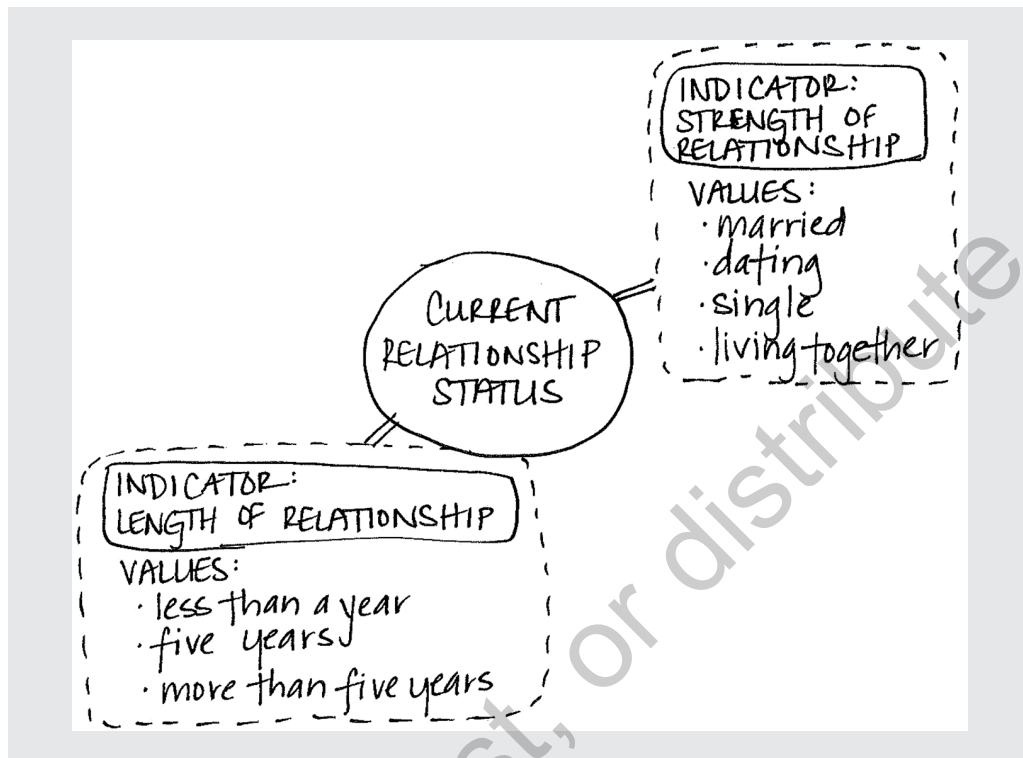 INDICATOR:
STRENGTH OF
RELATIONSHIP
VALUES:
· married
· dating
· single
· living together
CURRENT
RELATIONSHIP
STATUS
INDICATOR:
LENGTH OF RELATIONSHIP
VALUES:
· less than a year
· five years
· more than five years
or distribute